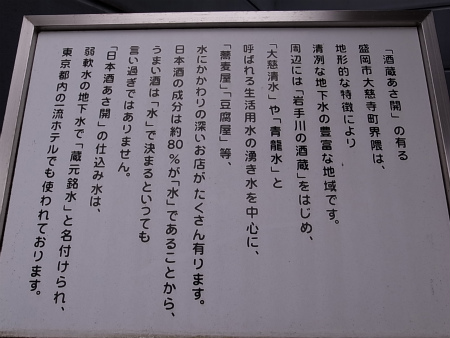 「酒蔵あさ開」の有る
盛岡市大慈寺町界隈は、
地形的な特徴により
清冽な地下水の豊富な地域です。
周辺には「岩手川の酒蔵」をはじめ、
「大慈清水」や「青龍水」と
呼ばれる生活用水の湧き水を中心に、
「蕎麦屋」「豆腐屋」等、
水にかかわりの深いお店がたくさん有ります。
日本酒の成分は約80%が「水」であることから、
うまい酒は「水」で決まるといっても
言い過ぎではありません。
「日本酒あさ開」の仕込み水は、
弱軟水の地下水で「蔵元銘水」と名付けられ、
東京都内の一流ホテルでも使われております。